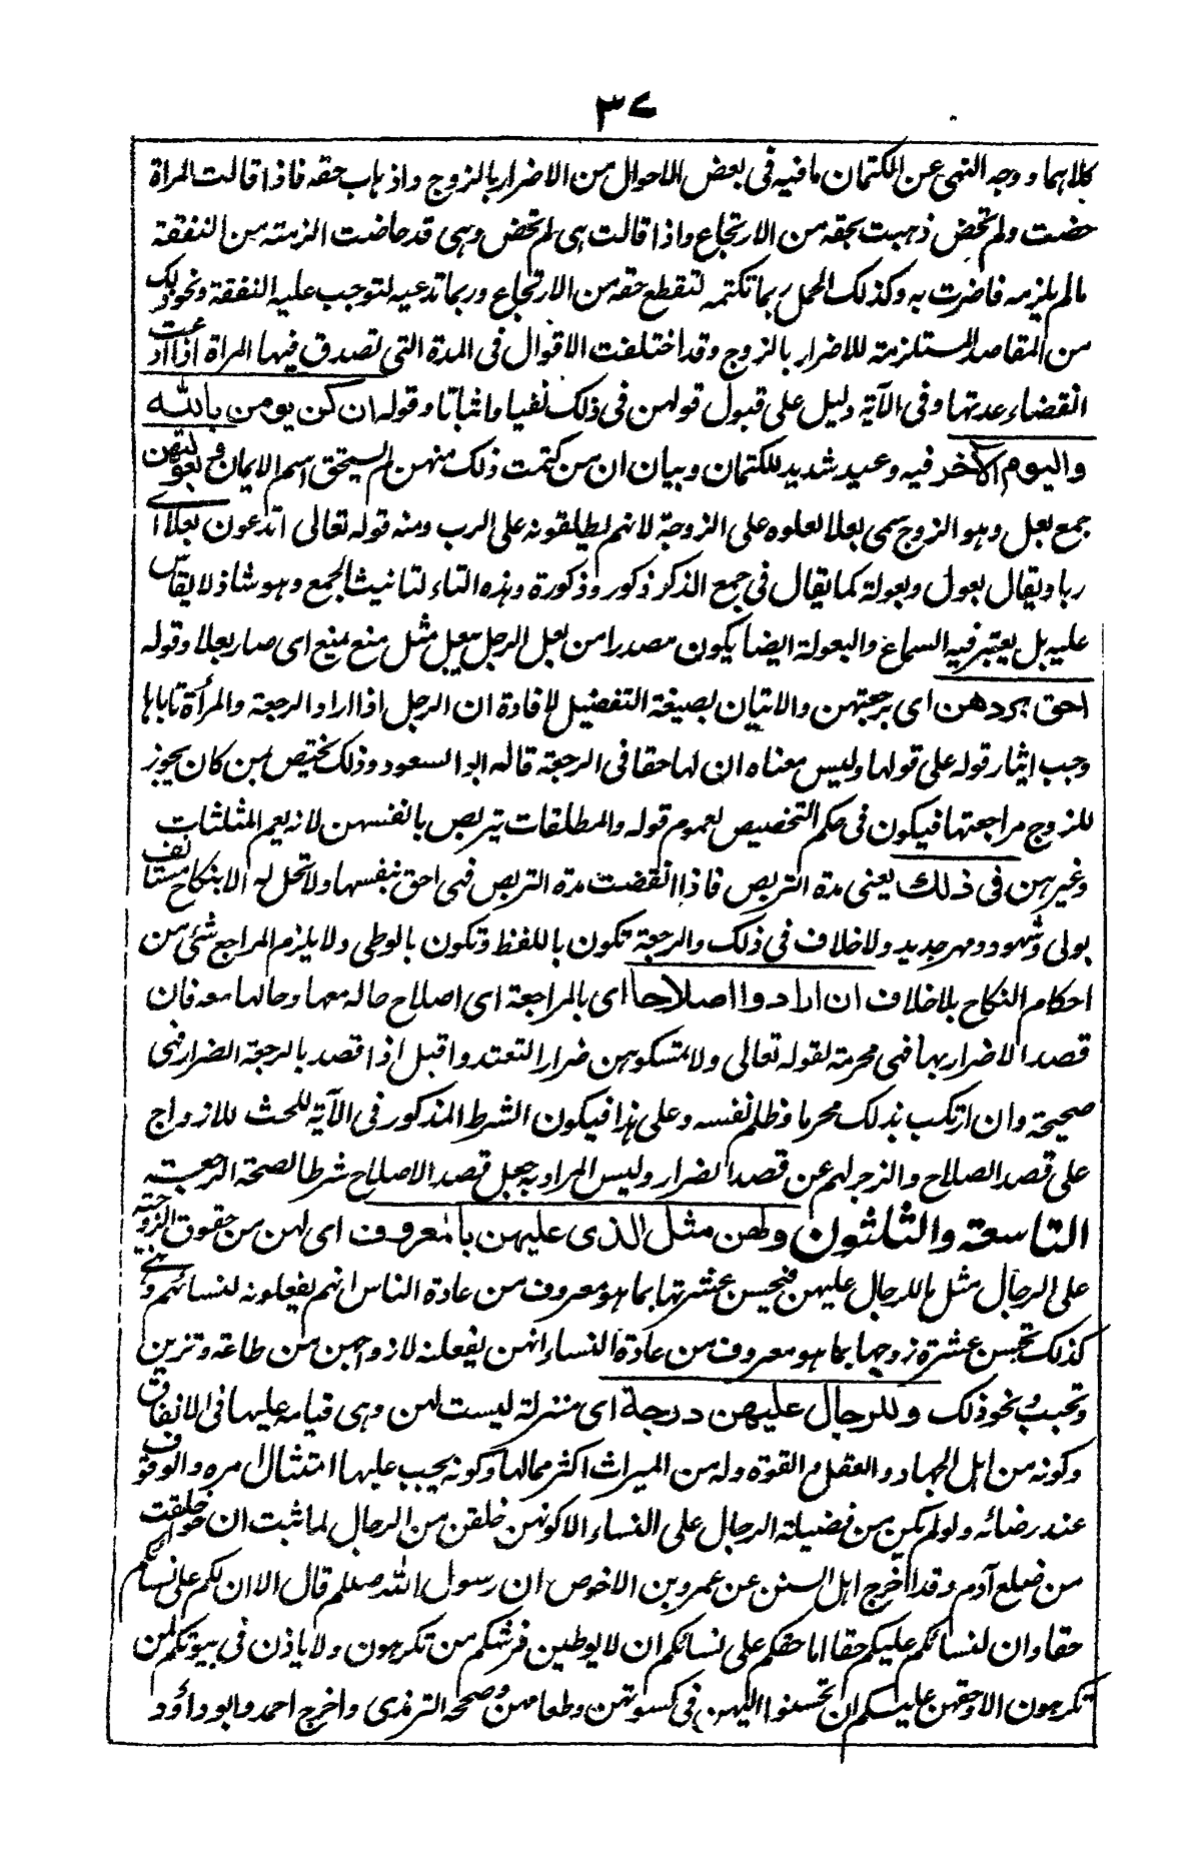 ٣٧
كلاهما ووجه النهي عن الكتمان ما فيه في بعض الاحوال من الاضرار بالزوج واذهاب حقه فاذا قالت المرأة
حضت ولم تحض ذهبت بحقه من الارتجاع واذا قالت هي لم تحض وهي قد حاضت الزمته من النفقة
مالم يلزمه فاضرت به وكذلك الحمل ربما تكتمه لتقطع حقه من الارتجاع وربما تدعيه لتوجب عليه النفقة ونحو ذلك
من المقاصد المستلزمة للاضرار بالزوج وقد اختلفت الاقوال في المدة التي تصدق فيها المرأة اذا ادعت
انقضاء عدتها وفي الآية دليل على قبول قولهن في ذلك نفيا واثباتا وقوله ان كن يومن بالله
واليوم الآخر فيه وعيد شديد للكتمان وبيان ان من كتمت ذلك منهن لم يستحق اسم الايمان وبعولتهن
جمع بعل وهو الزوج سمي بعلا لعلوه على الزوجة لانهم يطلقونه على الرب ومنه قوله تعالى اتدعون بعلا ا
ربا ويقال بعول وبعولة كما يقال في جمع الذكر ذكور وذكورة وهذه التاء لتانيث الجمع وهو شاذ لا يقاس
عليه بل يعتبر فيه السماع والبعولة ايضا يكون مصدرا من بعل الرجل يبعل مثل منع يمنع اى صار بعلا وقوله
احق بردهن اى برجعتهن والاتيان بصيغة التفضيل لافادة ان الرجل اذا اراد الرجعة والمرأة تاباها
وجب ايثار قوله على قولها وليس معناه ان لها حقا في الرجعة قاله ابو السعود وذلك يختص بمن كان يجوز
للزوج مراجعتها فيكون في حكم التخصيص لعموم قوله والمطلقات يتربصن بانفسهن لانه يعم المثلثات
وغيرهن في ذلك يعنى مدة التربص فاذا انقضت مدة التربص فهى احق بنفسها ولا تحل له الا بنكاح مستانف
بولى وشهود ومهر جديد ولا خلاف في ذلك والرجعة تكون باللفظ وتكون بالوطى ولا يلزم المراجع شئ من
احكام النكاح بلا خلاف ان ارادوا اصلاحا اى بالمراجعة اى اصلاح حاله معها وحالها معه فان
قصد الاضرار بها فهى محرمة لقوله تعالى ولا تمسكوهن ضرارا لتعتدوا قيل اذا قصد بالرجعة الضرار فهى
صحيحة وان ارتكب بذلك محرما وظلم نفسه وعلى هذا فيكون الشرط المذكور في الآية للحث للازواج
على قصد الصلاح والزجر لهم عن قصد الضرار وليس المراد به جعل قصد الاصلاح شرطا لصحة الرجعة
التاسعة والثلثون ولهن مثل الذى عليهن بالمعروف اى لهن من حقوق الزوجية
على الرجال مثل ما للرجال عليهن فيحسن عشرتها بما هو معروف من عادة الناس انهم يفعلونه لنسائهم وهي
كذلك تحسن عشرة زوجها بما هو معروف من عادة النساء انهن يفعلنه لازواجهن من طاعة وتزين
وتحبب ونحو ذلك وللرجال عليهن درجة اى منزلة ليست لهن وهي قيامه عليها في الانفاق
وكونه من اهل الجهاد والعقل والقوة وله من الميراث اكثر مما لها وكونه يجب عليها امتثال امره والوقوف
عند رضائه ولو لم يكن من فضيلة الرجال على النساء الا كونهن خلقن من الرجال لما ثبت ان حواء خلقت
من ضلع آدم وقد اخرج اهل السنن عن عمرو بن الاحوص ان رسول الله صلعم قال الا ان لكم على نسائكم
حقا وان لنسائكم عليكم حقا اما حقكم على نسائكم ان لا يوطين فرشكم من تكرهون ولا ياذن في بيوتكم لمن
تكرهون الا وحقهن عليكم ان تحسنوا اليهن في كسوتهن وطعامهن وصححه الترمذى واخرج احمد وابو داؤد